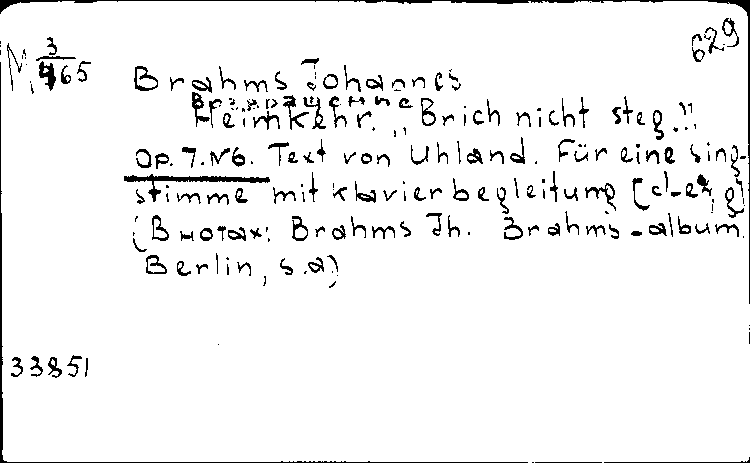 629
M 3/465
Brahms Johannes
Возвращение
Heimkehr. „Brich nicht steg."
Op. 7. N6. Text von Uhland. Für eine Sing-
stimme mit Klavierbegleitung
(В нотах: Brahms Jh. Brahms-album.
Berlin, s.a)
33851